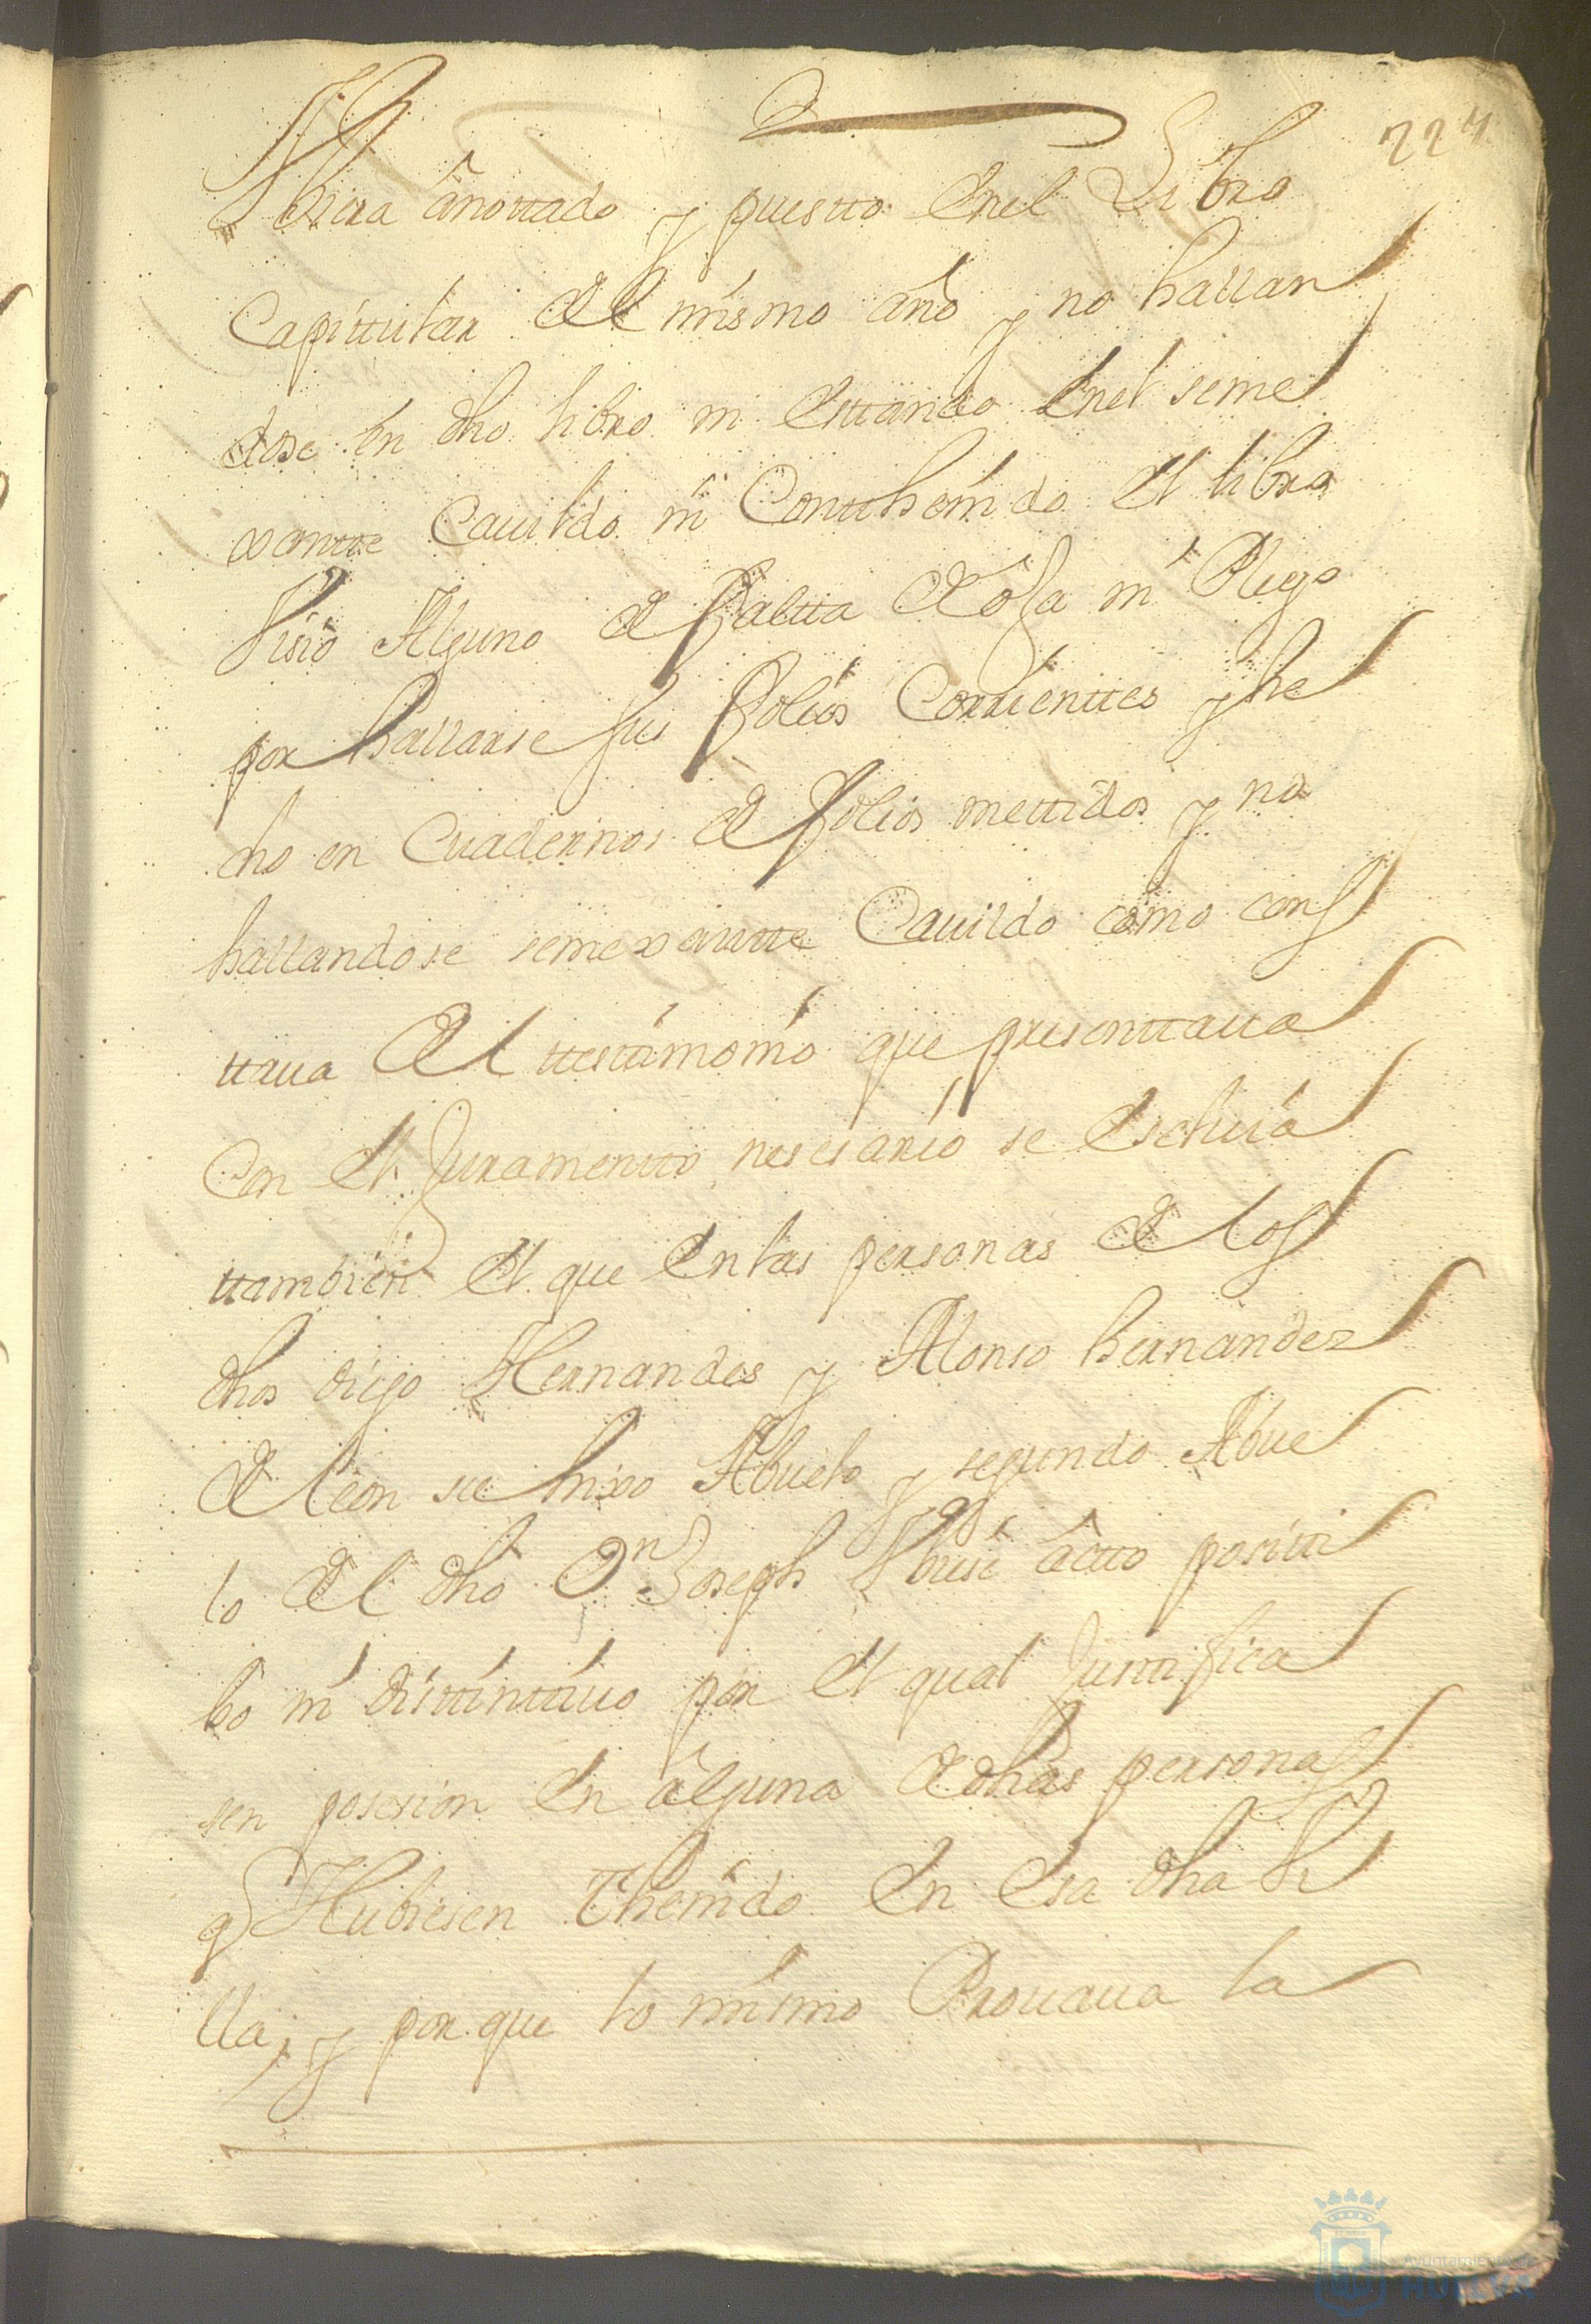 224
Vbiera anottado y puestto Enel Libro
Capittular del mismo año y no hallan
dose en dho libro ni Esttando Enel seme
xantte Cauildo ni Conthenido El libro
Visio Alguno de faltta de oja ni Pliego
por hallarse sus folios Corrienttes y he
cho en Cuadernos de folios mettidos y no
hallandose semexantte Cauildo como cons
ttaua del ttesttimonio que presenttaua
Con El Juramentto nesesario se Escluia
ttambien El que En las personas de los
dhos diego Hernandes y Alonso hernandez
de leon su hixo Abuelo y segundo Abue
lo del dho Dn Joseph Vbiese actto positti
bo ni disttinttiuo por El qual Justtifica
sen posesion En alguna de dhas personas
q Hubiesen Thenido En Esa dha Vi
lla; y porque lo mismo Prouaua la
Ayuntamiento de
HUELVA